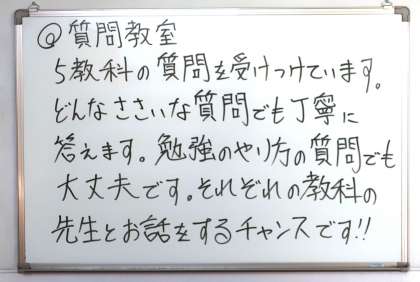 @質問教室
5教科の質問を受けつけています。
どんなささいな質問でも丁寧に
答えます。勉強のやり方の質問でも
大丈夫です。それぞれの教科の
先生とお話をするチャンスです!!